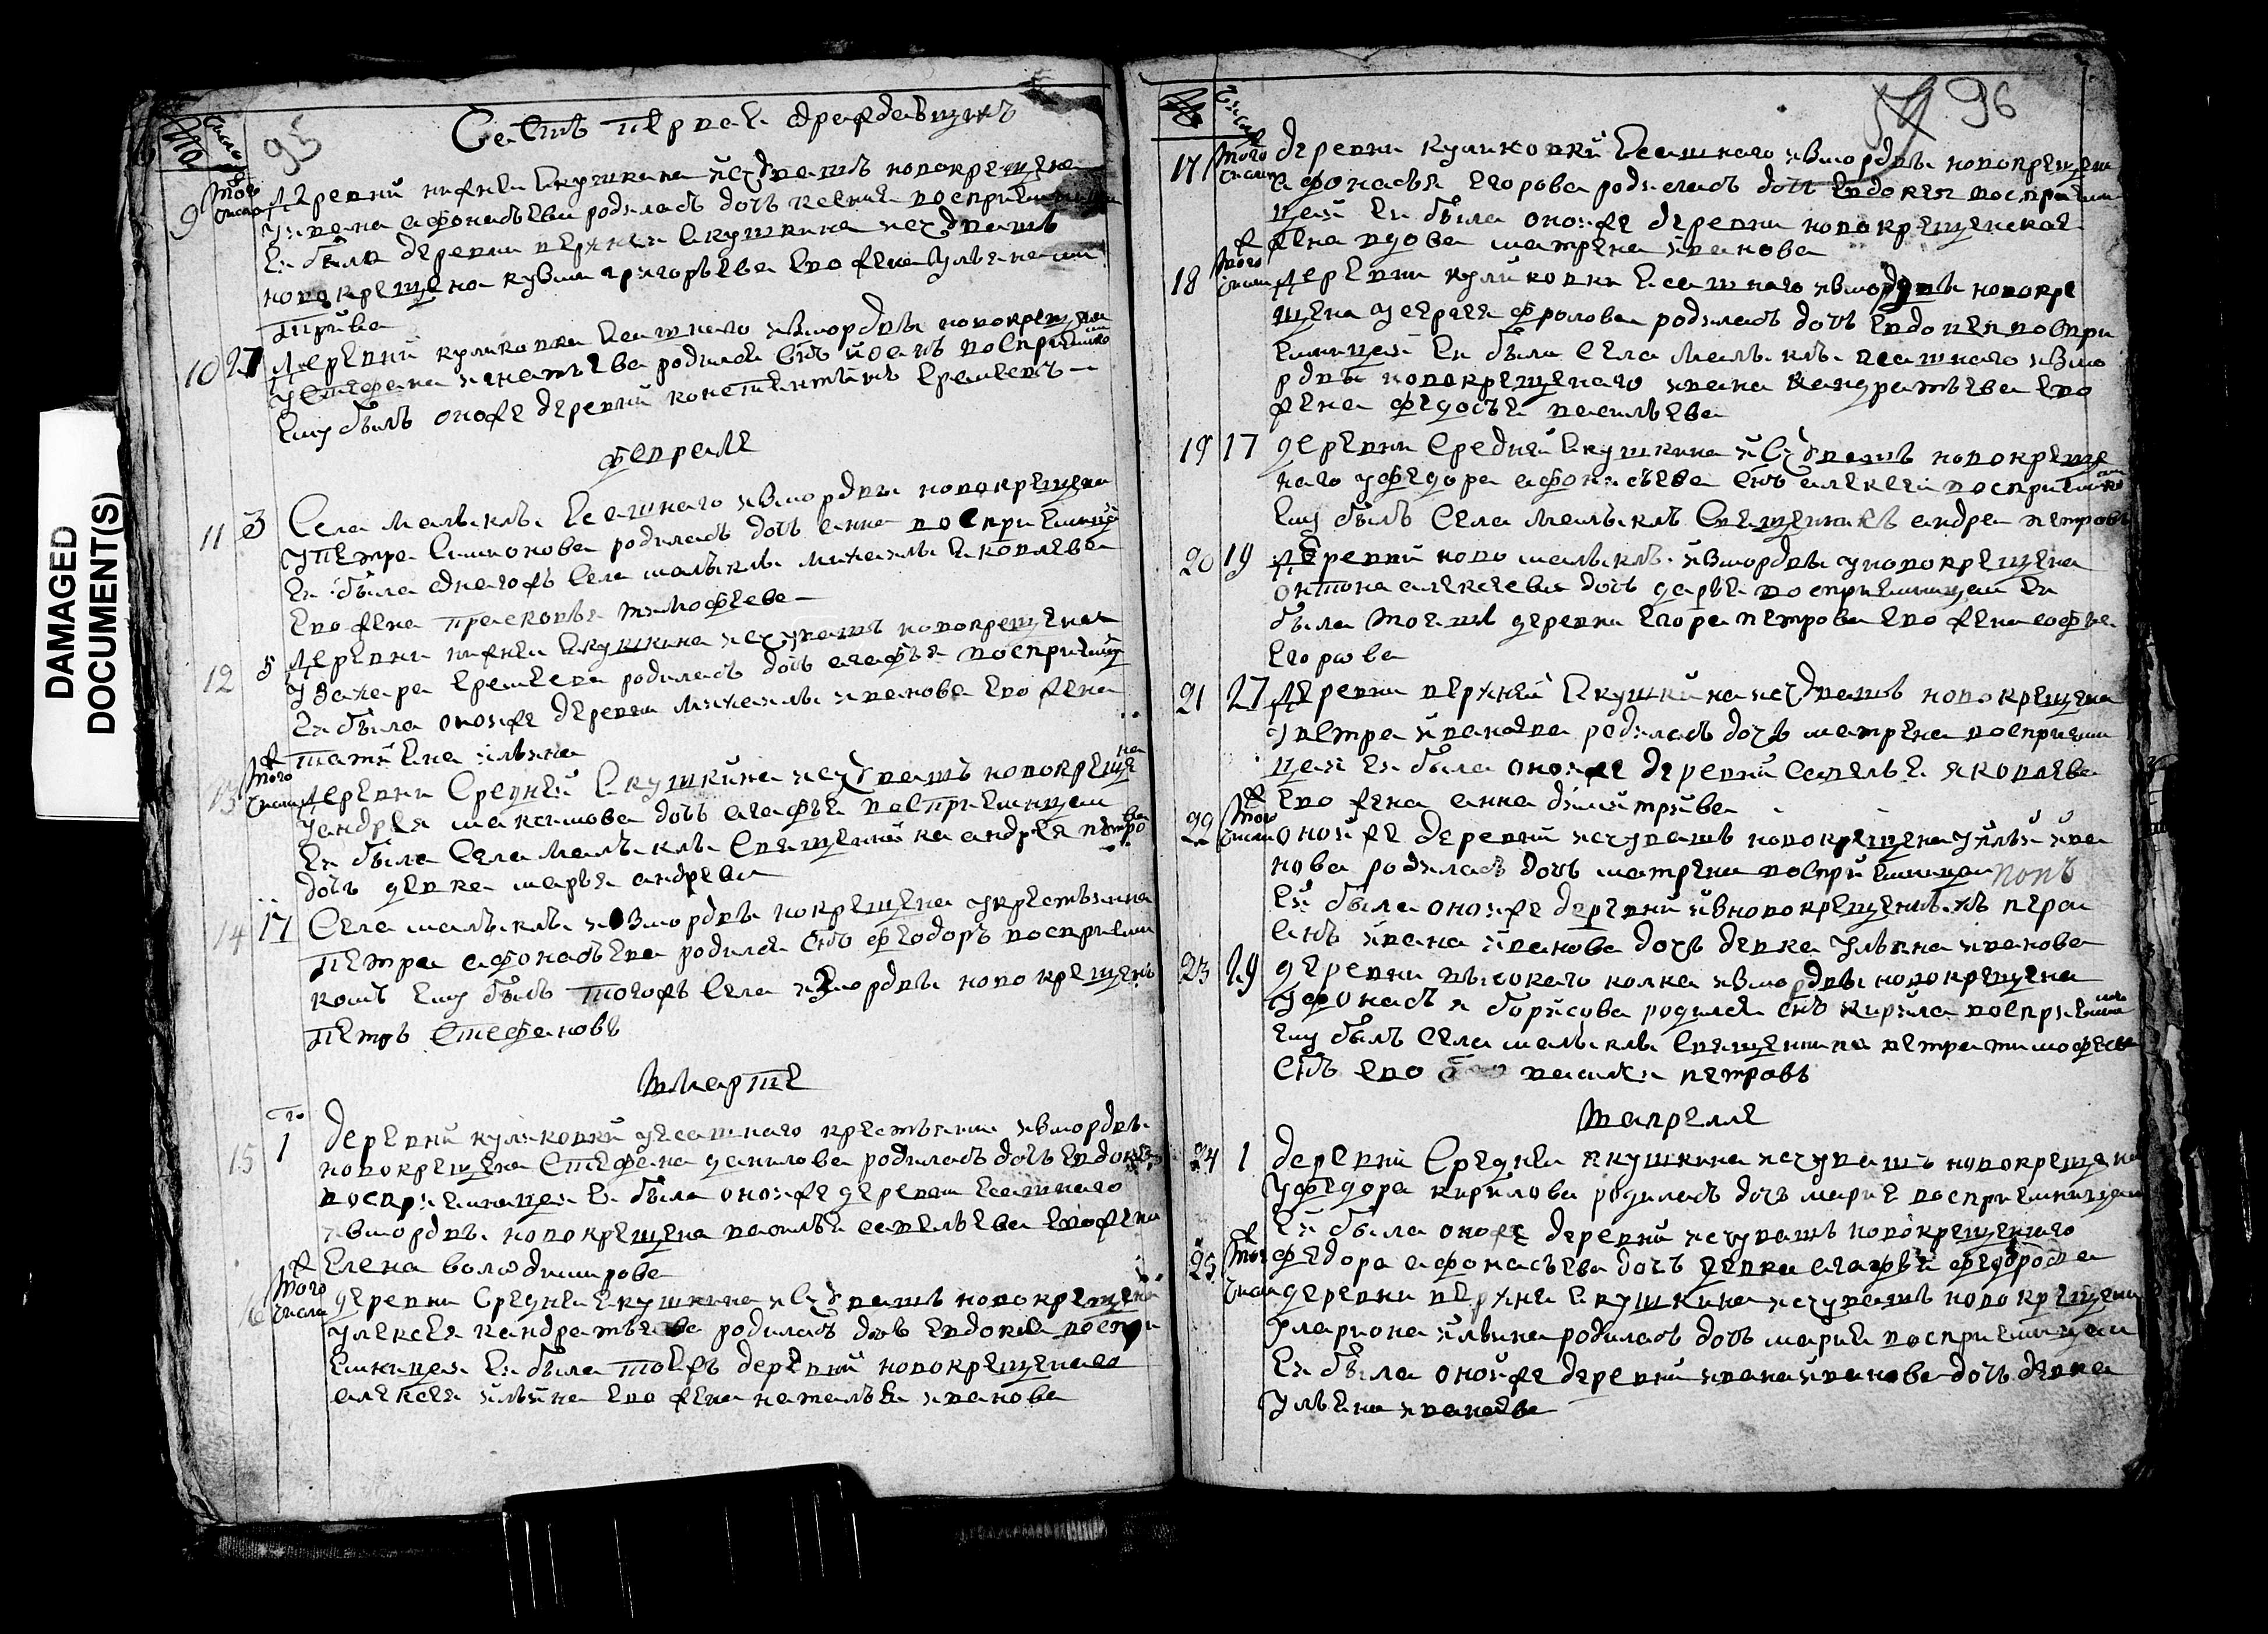 DAMAGED
DOCUMENT(S)
95
Часть перьвая ѡраждающихъ
9 того числа деревни нижнеи Екушкина исчувашъ новокрещена
уивана афонасьева родилась дочь ксения восприемница
Еи была деревни верхнеи Екушкина исчувашъ
новокрещена кузмы григорьева Его жена ульяна
10 27 деревни куликовки Есашнаго измордвы новокрещена
устефана игнатьева родился снъ восприемникъ
Ему былъ оноже деревни константинъ Еремеевъ
февраля
11 3 Села малыклы Есашнаго измордвы новокрещена
упетра Симионова родилась дочь анна восприемница
Еи была ѡднагожъ села малыклы михаилы Яковлева
Его жена прасковья тимофеева
12 5 деревни нижнеи Екушкина исчувашъ новокрещена
узахара Еремеева родилась дочь агафья восприемница
Еи была оноиже деревни михаилы иванова Его жена
татиена ильина
13 того числа деревни Среднеи Екушкина исчувашъ новокрещена
уандрея максимова дочь агафья восприемницеи
Еи была Села малыклы священника андрея петрова
дочь девка марья андреева
14 17 Села малыклы измордвы новокрещена укрестьянина
петра афонасьева родился снъ феодоръ восприемни
комъ Ему былъ тогожъ Села измордвы новокрещенъ
петръ Стефановъ
вмарте
15 1 деревни куликовки уесашнаго крестьянина измордвы
новокрещена Стефана данилова родилась дочь Евдокея
восприемницеи Еи была оноиже деревни Есашнаго
измордвы новокрещена василья савельева Егожена
Елена володимирова
16 того числа деревни Среднеи Екушкина исчувашъ новокрещена
уалексея кандратьева родилась дочь Евдокея воспри
емницеи Еи была тоежъ деревни новокрещенаго
алексея ильина Его жена наталья иванова
96
17 того числа деревни куликовки Есашнаго измордвы новокрещена
афонасья Егорова родилась дочь Евдокея восприемни
цеи Еи была оноиже деревни новокрещенская
жена вдова матрена иванова
18 того числа деревни куликовки Есашнаго измордвы новокре
щена усергея фролова родилась дочь Евдокея воспри
емницеи Еи была Села малыклы Есашнаго измо
рдвы новокрещенаго ивана кандратьева Его
жена федосья васильева
19 17 деревни Среднеи Екушкина исчувашъ новокреще
наго уфедора афонасьева снъ алексеи восприемникъ
Ему былъ Села малыклъ Священникъ андреи петровъ
20 19 деревни ново малыклы измордвы уновокрещена
онтона алексеева дочь дарья восприемницеи Еи
была тоежъ деревни Егора петрова Его жена софья
Егорова
21 27 деревни верхнеи Екушкина исчувашъ новокрещена
упетра иванова родилась дочь матрена восприемни
цеи Еи была оноиже деревни савелья яковлева
Его жена анна димитриева
22 того числа оноиже деревни исчувашъ новокрещена уильи ива
нова родилась дочь матрена восприемницеи попъ
Еи была оноиже деревни изновокрещеныхъ
ивана иванова дочь девка ульяна иванова
23 29 деревни высокаго колка измордвы новокрещена
уафонасья борисова родился снъ кирила восприемникъ
Ему былъ Села малыклы Священника петра тимофеева
снъ Его василеи петровъ
вапреле
24 1 деревни Среднеи якушкина исчувашъ новокрещена
уфедора кирилова родилась дочь мария восприемницеи
Еи была оноже деревни исчувашъ новокрещеннаго
федора афонасьева дочь девка агафья федорова
25 того числа деревни верхнеи Екушкина исчувашъ новокрещена
улариона ильина родилась дочь мария восприемницеи
Еи была оноиже деревни ивана иванова дочь девка
ульяна иванова